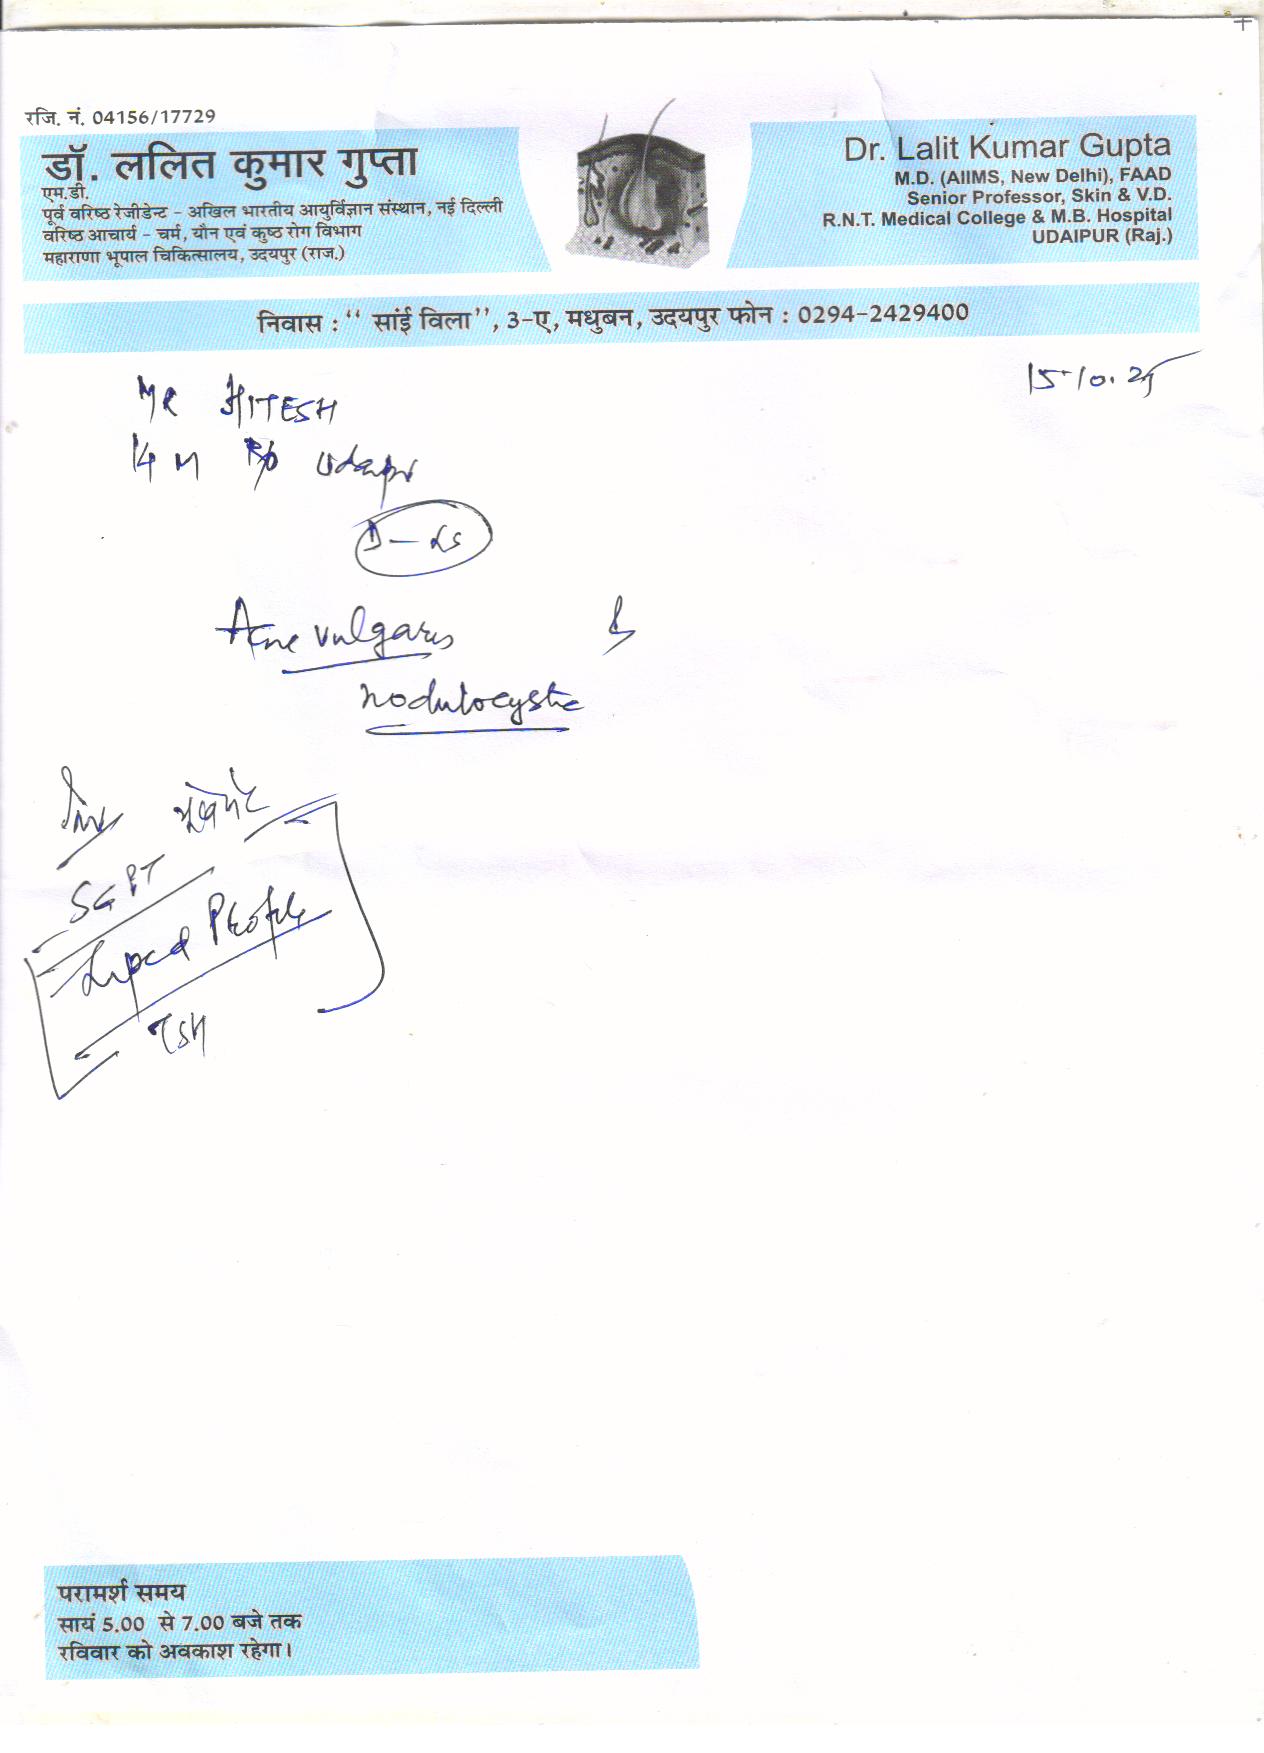 रजि. नं. 04156/17729
डॉ. ललित कुमार गुप्ता
एम.डी.
पूर्व वरिष्ठ रेजीडेन्ट - अखिल भारतीय आयुर्विज्ञान संस्थान, नई दिल्ली
वरिष्ठ आचार्य - चर्म, यौन एवं कुष्ठ रोग विभाग
महाराणा भूपाल चिकित्सालय, उदयपुर (राज.)
Dr. Lalit Kumar Gupta
M.D. (AIIMS, New Delhi), FAAD
Senior Professor, Skin & V.D.
R.N.T. Medical College & M.B. Hospital
UDAIPUR (Raj.)
निवास : ‘‘ सांई विला’’, 3-ए, मधुबन, उदयपुर फोन : 0294-2429400
15.10.25
MR HITESH
14 M R/o Udaipur
Acne vulgaris
nodulocystic
SGPT
Lipid Profile
TSH
परामर्श समय
सायं 5.00 से 7.00 बजे तक
रविवार को अवकाश रहेगा।